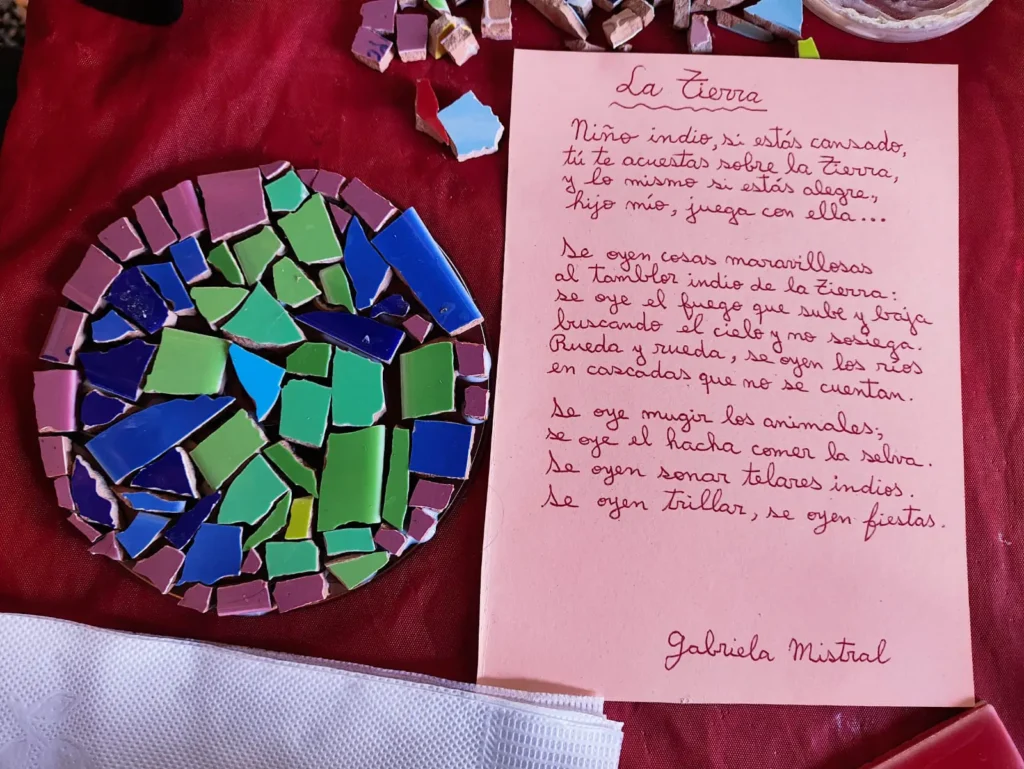 La Tierra
Niño indio, si estás cansado,
tú te acuestas sobre la Tierra,
y lo mismo si estás alegre,
hijo mío, juega con ella...
Se oyen cosas maravillosas
al tambor indio de la Tierra:
se oye el fuego que sube y baja
buscando el cielo y no sosiega.
Rueda y rueda, se oyen los ríos
en cascadas que no se cuentan.
Se oye mugir los animales;
se oye el hacha comer la selva.
Se oyen sonar telares indios.
Se oyen trillar, se oyen fiestas.
Gabriela Mistral